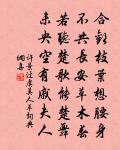 合歡枝葉想腰身
不共長安草木春
若聽楚歌能楚舞
未央空有戚夫人
許景迂虞美人草詞典
網